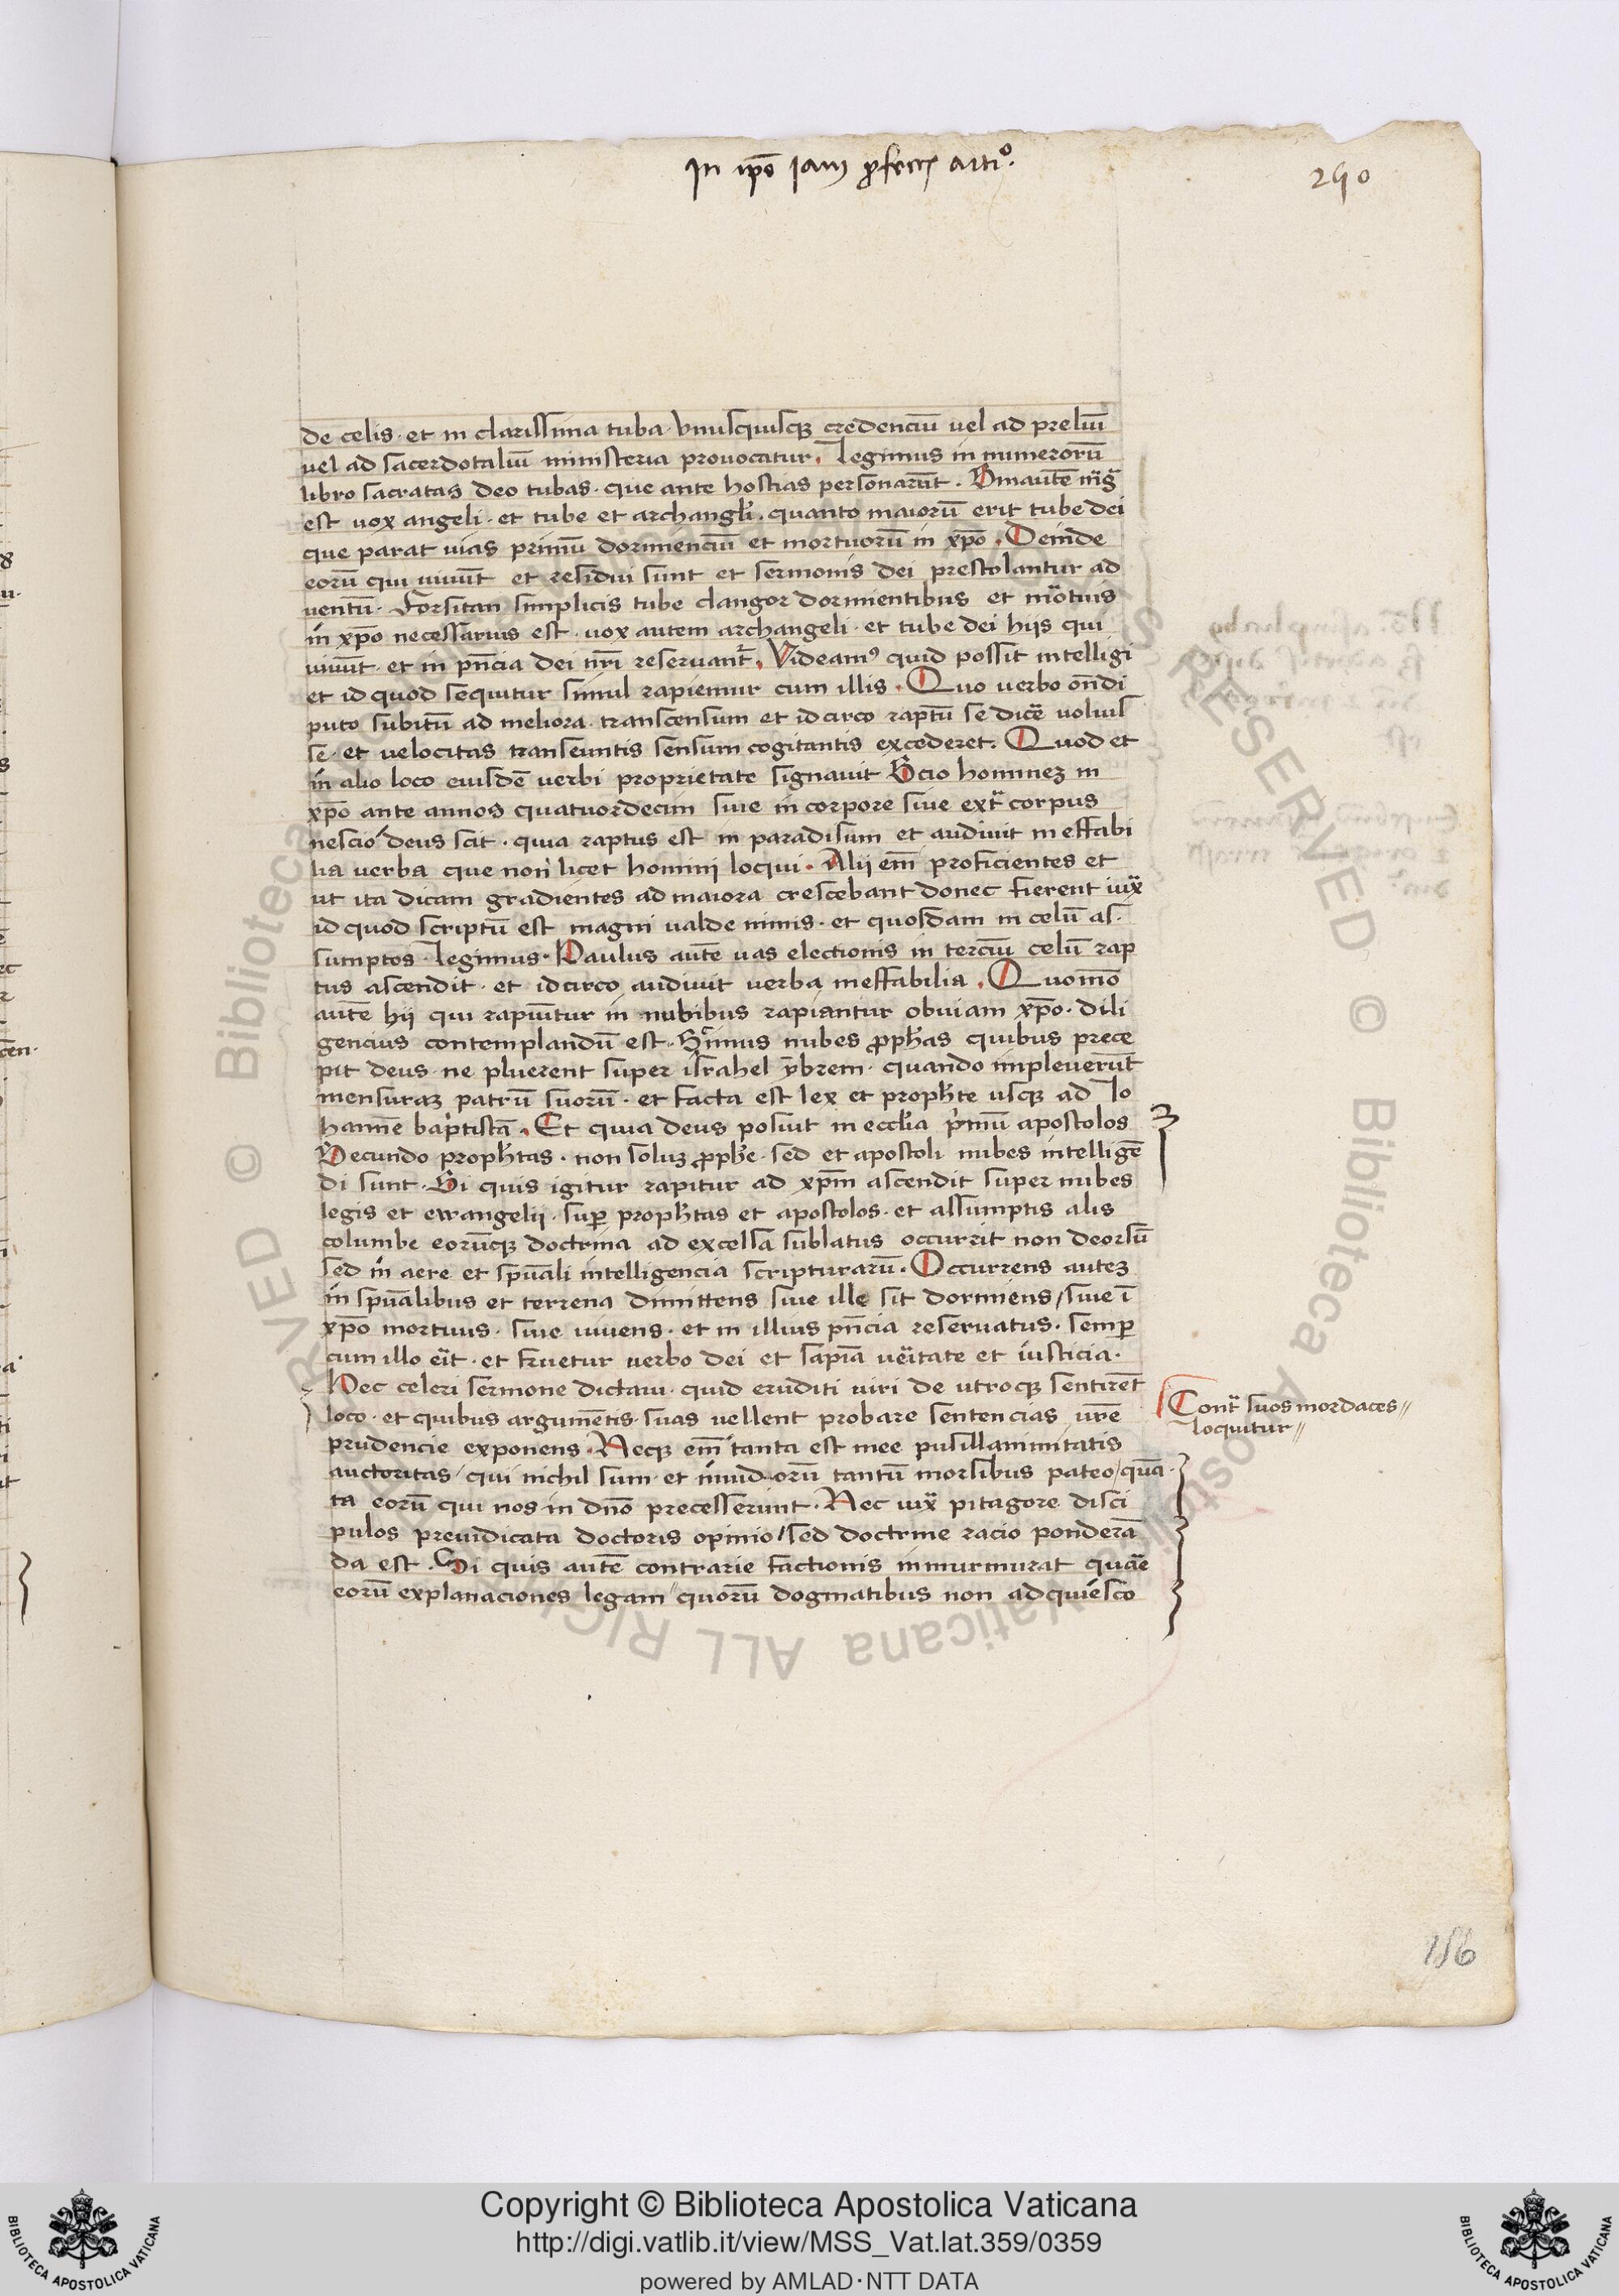 In ipõ iam
290
de celis· et in clarissima tuba· vnusquisqz credenciũ uel ad preliũ
uel ad sacerdotaliũ ministeria prouocatur. Legimus in numerorũ
libro sacratas deo tubas· que ante hostias personarũt.
est uox angeli· et tube et archangłi· quanto maiorũ erit tube dei
que parat uias primũ dormienciũ et mortuorũ in xp̃o. Deinde
eorũ qui uiuũt et residui sunt et sermonis dei prestolantur ad
uentũ· Forsitan simplicis tube clangor dormientibus et mõtuis
in xp̃o necessarius est· uox autem archangeli· et tube dei hijs qui
uiuũt· et in pñcia dei nr̃i reseruant᷑. Videamꝰ quid possit intelligi
et id quod sequitur simul rapiemur cum illis. Quo uerbo oñdi
puto subitũ ad meliora transcensum et idcirco raptũ se dicẽ uoluis
se· et velocitas transeuntis sensum cogitantis excederet. Quod et
in alio loco eiusdẽ verbi proprietate signauit Scio hominez in
xp̃o ante annos quatuordecim siue in corpore siue ext᷑ corpus
nescio deus scit· quia raptus est in paradisum et audiuit ineffabi
lia verba que non licet homini loqui. Alii em̃ proficientes et
ut ita dicam gradientes ad maiora crescebant donec fierent iux̃
id quod scriptũ est magni ualde nimis· et quosdam in celũ as·
sumptos· Legimus· Paulus autẽ uas electionis in terciũ celũ rap
tus ascendit· et idcirco audiuit verba ineffabilia. Quomõ
autẽ hij qui rapiũtur in nubibus rapiantur obuiam xp̃o· dili
gencius contemplandũ est· Scimus nubes ꝓph̃as quibus prece
pit deus· ne pluerent super israhel ỹbrem· quando impleuerũt
mensuraz patrũ suorũ· et facta est lex et proph̃te usqz ad Io
hannẽ baptistã. Et quia deus posuit in eccłia p̃mũ apostolos
Secundo proph̃tas· non soluz ꝓph̃e· sed et apostoli nubes intelligẽ
di sunt· Si quis igitur rapitur ad xp̃m ascendit super nubes
legis et ewangelij· suꝑ proph̃tas et apostolos· et assumptis alis
columbe eorũqz doctrina ad excelsa sublatus occurrit non deorsũ
sed in aere et spũali intelligencia scripturarũ. Occurrens autez
in spũalibus et terrena dimittens siue ille sit dormiens/ siue ĩ
xp̃o mortuus· siue uiuens· et in illius pñcia reseruatus· semꝑ
cum illo eĩt· et fruetur verbo dei et sapĩa ueĩtate et iusticia·
Hec celeri sermone dictaui· quid eruditi uiri de utroqz sentirẽt
loco· et quibus argumẽtis· suas vellent probare sentencias ur̃e
prudencie exponens· Neqz em̃ tanta est mee pusillanimitatis
auctoritas/ qui nichil sum· et inuid orũ tantũ morsibus pateo/ quã·
ta eorũ qui nos in dñõ precesserunt· Nec iux̃ pitagore disci
pulos preiudicata doctoris opinio/ sed doctrine racio ponderã
da est· Si quis autẽ contrarie factionis inmurmurat quãe
eorũ explanaciones legam″ quorũ dogmatibus non adquiesco
Cont᷑ suos mordaces″
loquitur″
156
Copyright © Biblioteca Apostolica Vaticana
http://digi.vatlib.it/view/MSS_Vat.lat.359/0359
powered by AMLAD·NTT DATA
BIBLIOTECA APOSTOLICA VATICANA
BIBLIOTECA APOSTOLICA VATICANA